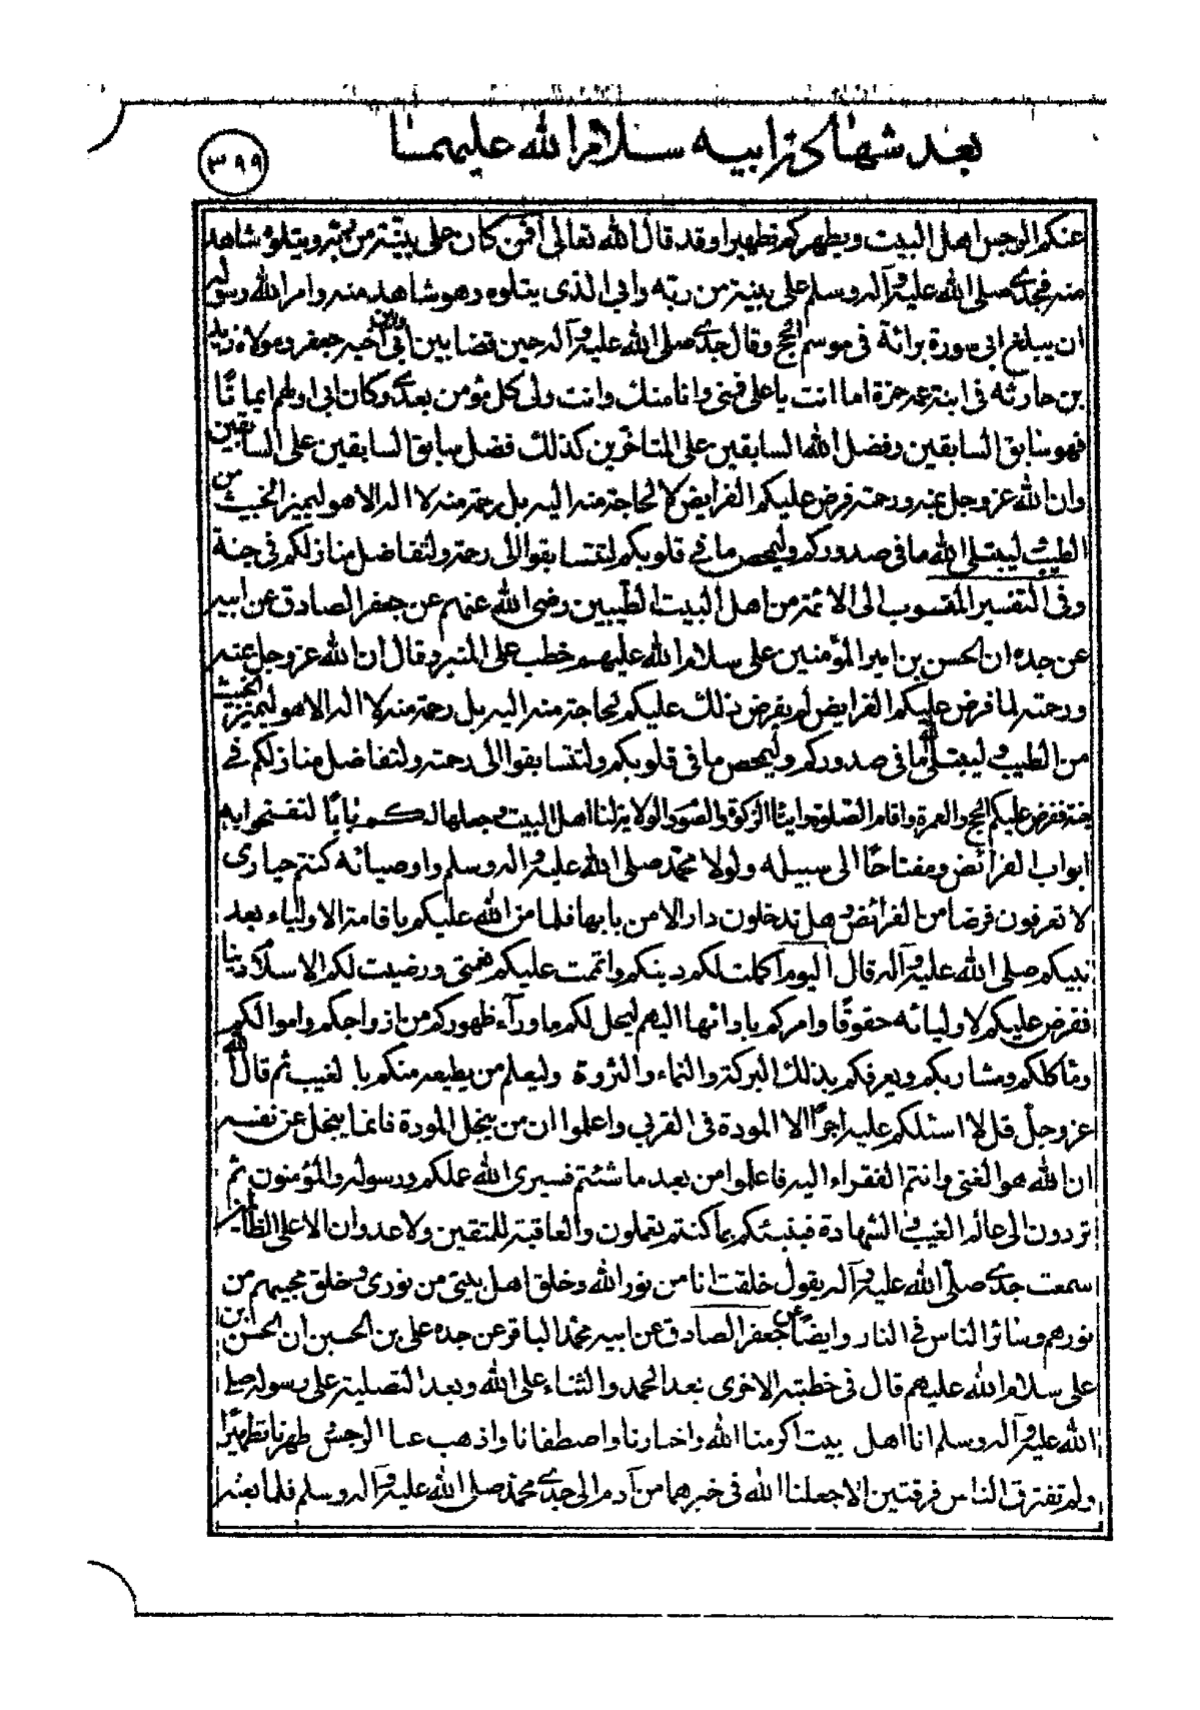 بعد شهادة ابيه سلام الله عليهما
٣٩٩
عنكم الرجس اهل البيت ويطهركم تطهيرا وقد قال الله تعالى افمن كان على بينة من ربه ويتلوه شاهد
منه فجدى صلى الله عليه وآله وسلم على بينة من ربه وابى الذى يتلوه وهو شاهد منه وامر الله رسوله
ان يبلغ ابى سورة برائة فى موسم الحج وقال جدى صلى الله عليه وآله حين قضا بين ابى واخيه جعفر ومولاه زيد
بن حارثه فى ابنة عمه حمزة اما انت يا على فمنى وانا منك وانت ولى كل مؤمن بعدى وكان ابى اولهم ايمانًا
فهو سابق السابقين وفضل الله السابقين على المتاخرين كذلك فضل سابق السابقين على السابقين
وان الله عز وجل بمنه ورحمته فرض عليكم الفرايض لا لحاجة منه اليه بل رحمة منه لا اله الا هو ليميز الخبيث من
الطيب ليبتلى الله ما فى صدوركم وليمحص ما فى قلوبكم لتتسابقوا الى رحمته ولتتفاضل منازلكم فى جنة
وفى التفسير المنسوب الى الائمة من اهل البيت الطيبين رضى الله عنهم عن جعفر الصادق عن ابيه
عن جده ان الحسن بن امير المؤمنين على سلام الله عليهم خطب على المنبر وقال ان الله عز وجل بمنه
ورحمته لما فرض عليكم الفرايض لم يفرض ذلك عليكم لحاجة منه اليه بل رحمة منه لا اله الا هو ليميز الخبيث
من الطيب وليبتلى الله ما فى صدوركم وليمحص ما فى قلوبكم ولتتسابقوا الى رحمته ولتتفاضل منازلكم فى
جنة ففرض عليكم الحج والعمرة واقام الصلوة وايتا الزكوة والصوم والولاية لنا اهل البيت وجعلها لكم بابًا لتفتحوا به
ابواب الفرائض ومفتاحًا الى سبيله ولولا محمد صلى الله عليه وآله وسلم واوصيائه كنتم حيارى
لا تعرفون فرضا من الفرائض وهل تدخلون دارا الا من بابها فلما من الله عليكم باقامة الاولياء بعد
نبيكم صلى الله عليه وآله قال اليوم اكملت لكم دينكم واتممت عليكم نعمتى ورضيت لكم الاسلام دينا
ففرض عليكم لاوليائه حقوقًا وامركم بادائها اليهم ليحل لكم ما ورآء ظهوركم من ازواجكم واموالكم
ومآكلكم ومشاربكم ويعرفكم بذلك البركة والنماء والثروة وليعلم من يطيعه منكم بالغيب ثم قال الله
عز وجل قل لا اسئلكم عليه اجرًا الا المودة فى القربى واعلموا ان من يبخل المودة فانما يبخل عن نفسه
ان الله هو الغنى وانتم الفقراء اليه فاعلموا من بعد ما شئتم فسيرى الله عملكم ورسوله والمؤمنون ثم
تردون الى عالم الغيب والشهادة فينبئكم بما كنتم تعملون والعاقبة للمتقين ولا عدوان الا على الظالمين
سمعت جدى صلى الله عليه وآله يقول خلقت انا من نور الله وخلق اهل بيتى من نورى وخلق محبيهم من
نورهم وسائر الناس فى النار وايضًا عن جعفر الصادق عن ابيه محمد الباقر عن جده على بن الحسين ان الحسن ابن
على سلام الله عليهم قال فى خطبته الاخرى بعد الحمد والثناء على الله وبعد التصلية على رسوله صلى
الله عليه وآله وسلم انا اهل بيت اكرمنا الله واختارنا واصطفانا واذهب عنا الرجس طهرنا تطهيرًا
ولم تفترق الناس فرقتين الا جعلنا الله فى خيرهما من آدم الى جدى محمد صلى الله عليه وآله وسلم فلما بعثه